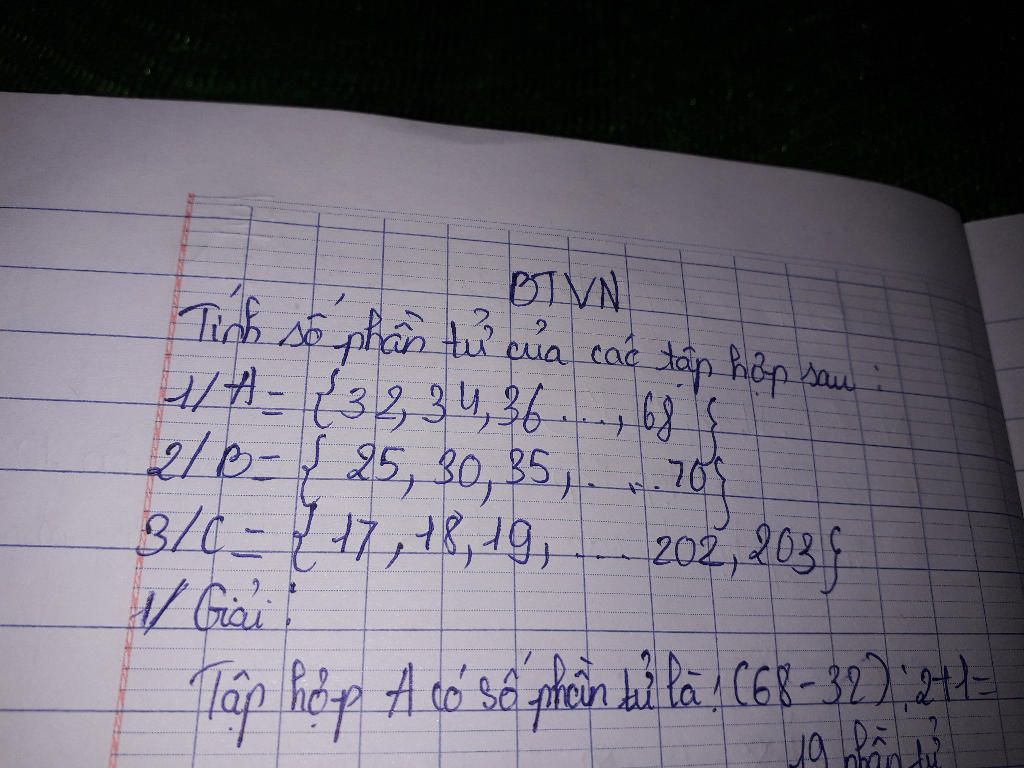 BTVN
Tính số phần tử của các tập hợp sau :
1/ A = {32, 34, 36 ...., 68 }
2/ B = { 25, 30, 35, . ... 70}
3/ C = { 17, 18, 19, .... 202, 203}
1/ Giải :
Tập hợp A có số phần tử là : (68 - 32) : 2 + 1 =
19 phần tử